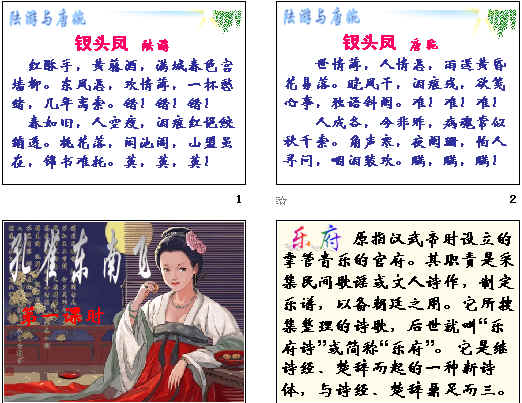 陆游与唐婉
钗头凤 陆游
红酥手，黄藤酒，满城春色宫
墙柳。东风恶，欢情薄，一杯愁
绪，几年离索。错！错！错！
春如旧，人空瘦，泪痕红悒绞
绡透。桃花落，闲池阁，山盟虽
在，锦书难托。莫，莫，莫！
1
陆游与唐婉
钗头凤 唐琬
世情薄，人情恶，雨送黄昏
花易落。晓风干，泪痕残，欲笺
心事，独语斜阑。难！难！难！
人成各，今非昨，病魂常似
秋千索。角声寒，夜阑珊，怕人
寻问，咽泪装欢。瞒，瞒，瞒！
2
孔雀东南飞
第一课时
乐府 原指汉武帝时设立的
掌管音乐的官府。其职责是采
集民间歌谣或文人诗作，制定
乐谱，以备朝廷之用。它所搜
集整理的诗歌，后世就叫“乐
府诗”或简称“乐府”。它是继
诗经、楚辞而起的一种新诗
体，与诗经、楚辞鼎足而三。